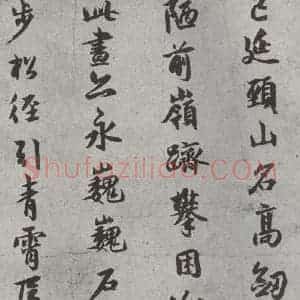 已延頸山名高
陋前嶺躋攀困
此畫亦永巍巍石
步松徑引青霄
Shufaziliao.COM